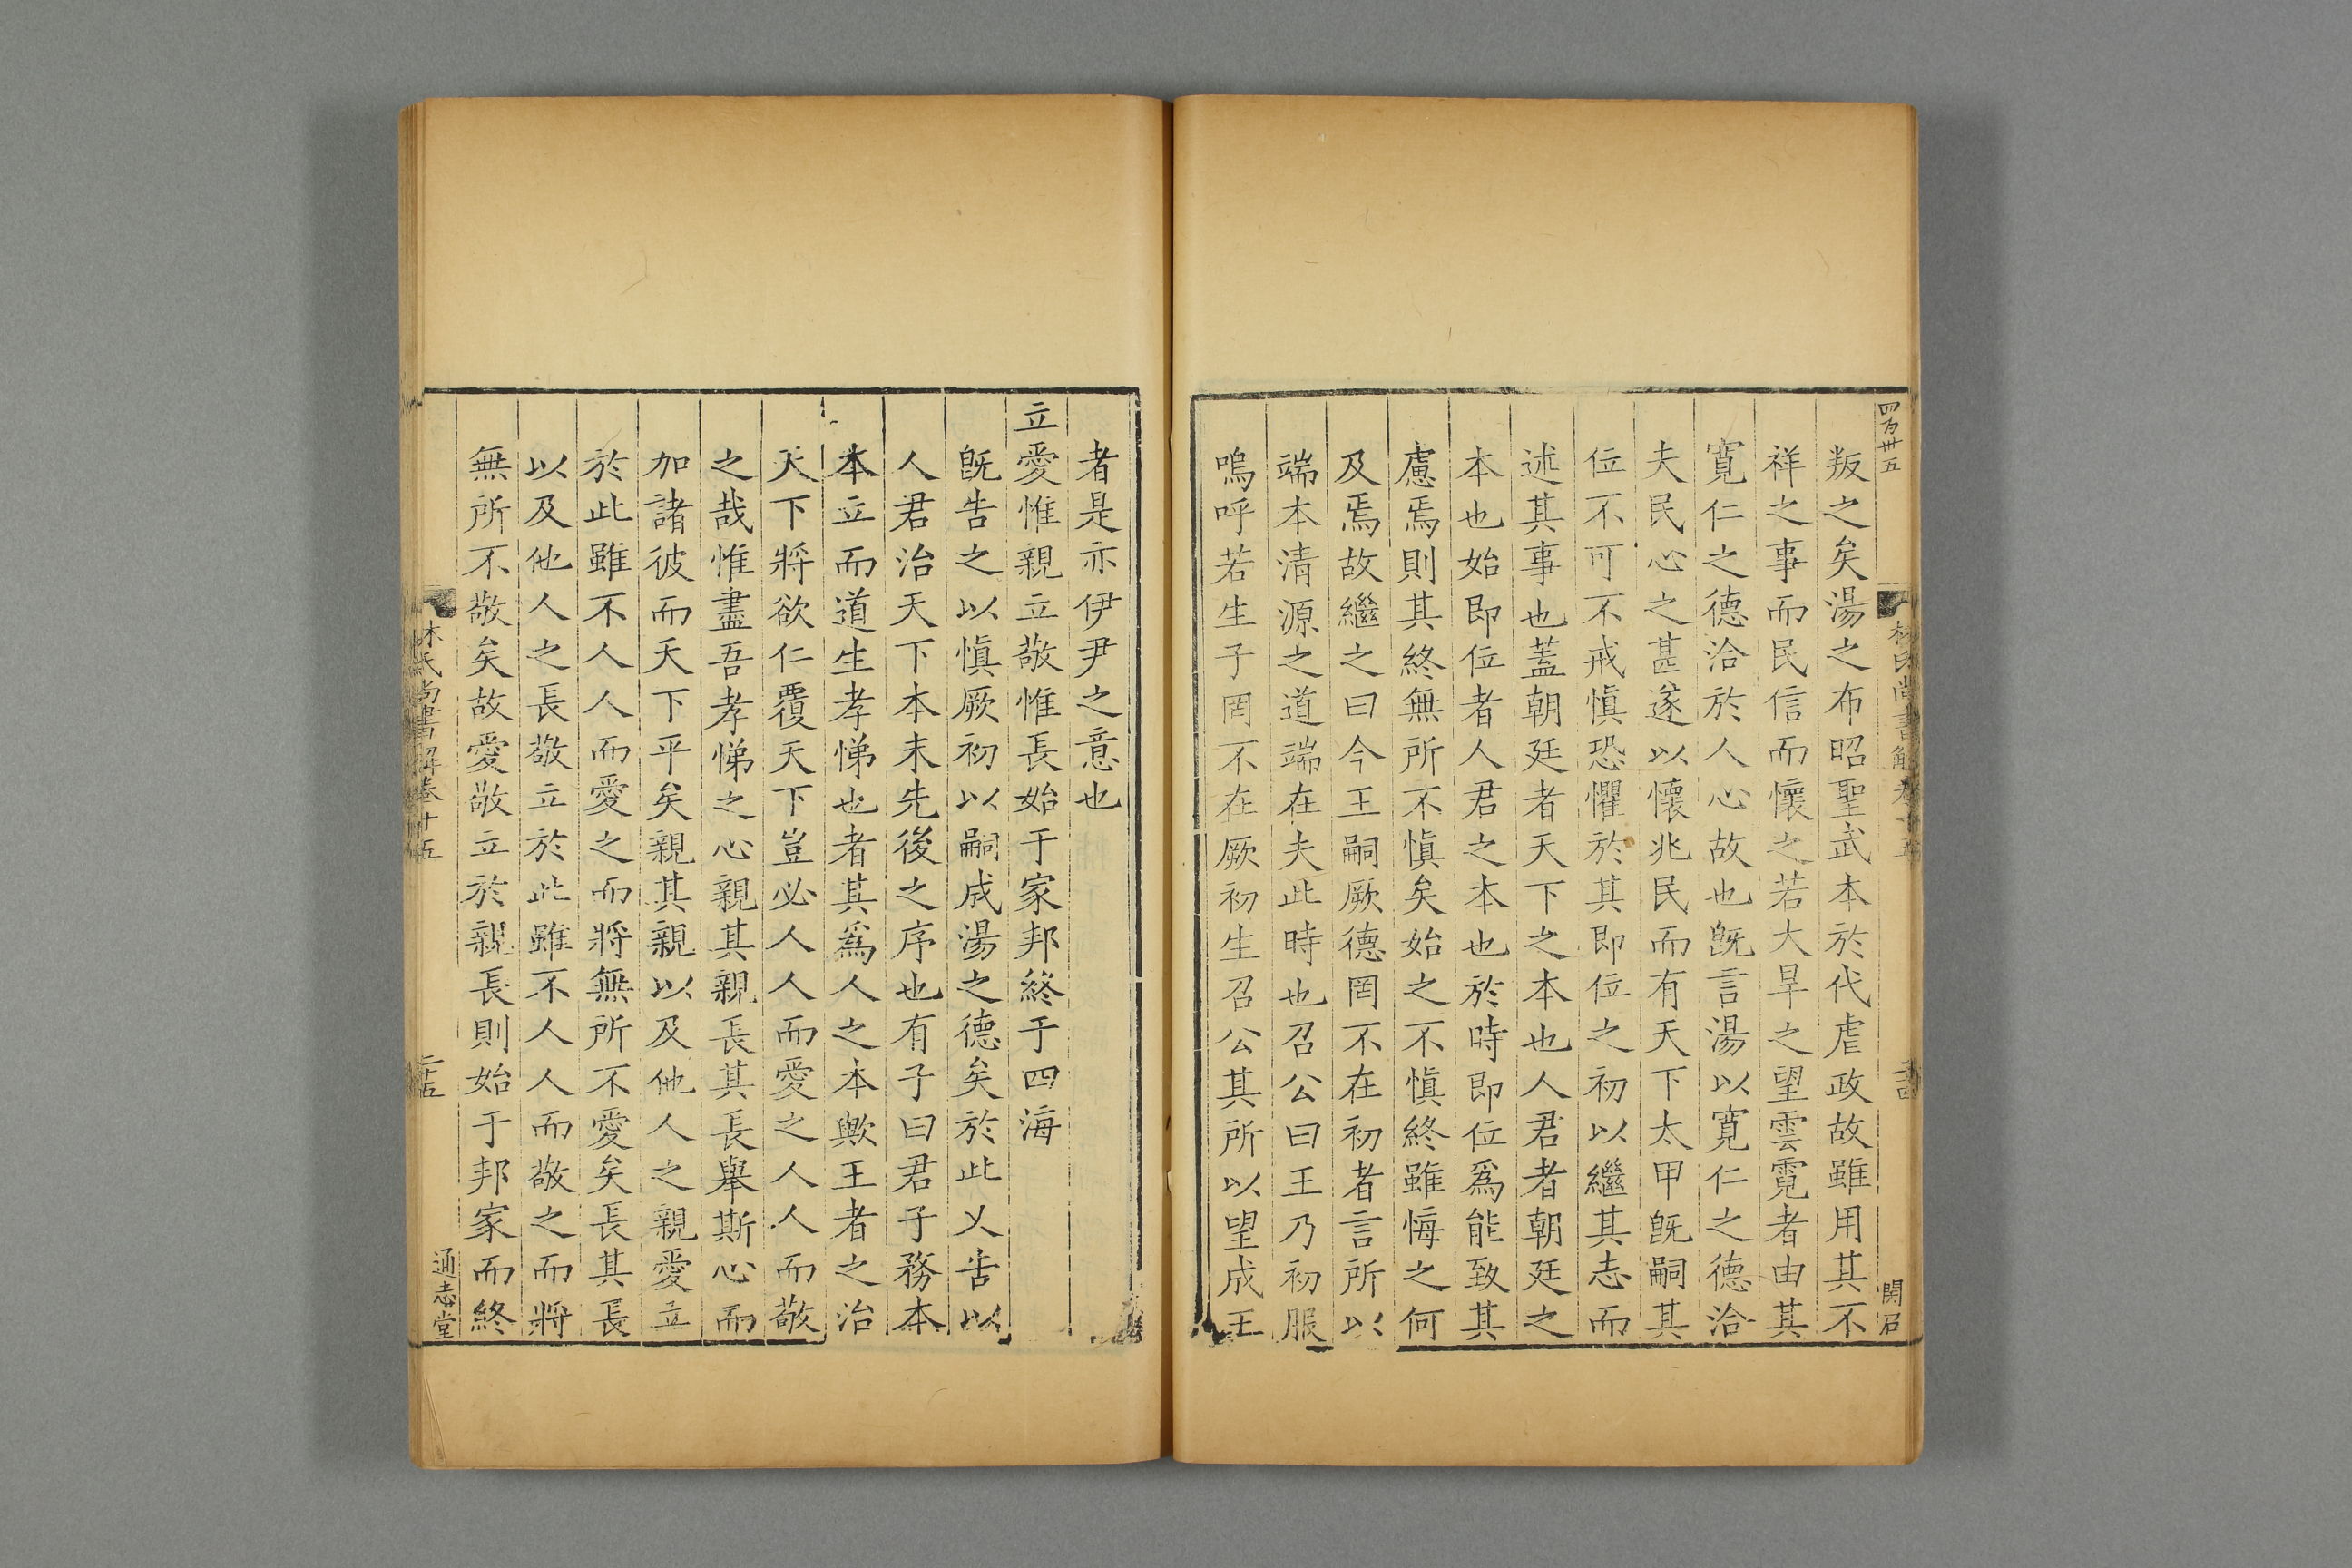 四百卅五
林氏尚書解卷十五
二十四
関召
叛之矣湯之布昭聖武本於代虐政故雖用其不
祥之事而民信而懷之若大旱之望雲霓者由其
寬仁之德洽於人心故也旣言湯以寬仁之德洽
夫民心之甚遂以懷兆民而有天下太甲旣嗣其
位不可不戒愼恐懼於其即位之初以繼其志而
述其事也蓋朝廷者天下之本也人君者朝廷之
本也始即位者人君之本也於時即位爲能致其
慮焉則其終無所不愼矣始之不愼終雖悔之何
及焉故繼之曰今王嗣厥德罔不在初者言所以
端本清源之道端在夫此時也召公曰王乃初服
嗚呼若生子罔不在厥初生召公其所以望成王
者是亦伊尹之意也
立愛惟親立敬惟長始于家邦終于四海
旣告之以愼厥初以嗣成湯之德矣於此乂告以
人君治天下本末先後之序也有子曰君子務本
本立而道生孝悌也者其爲人之本歟王者之治
天下將欲仁覆天下豈必人人而愛之人人而敬
之哉惟盡吾孝悌之心親其親長其長舉斯心而
加諸彼而天下平矣親其親以及他人之親愛立
於此雖不人人而愛之而將無所不愛矣長其長
以及他人之長敬立於此雖不人人而敬之而將
無所不敬矣故愛敬立於親長則始于邦家而終
林氏尚書解卷十五
二十五
通志堂